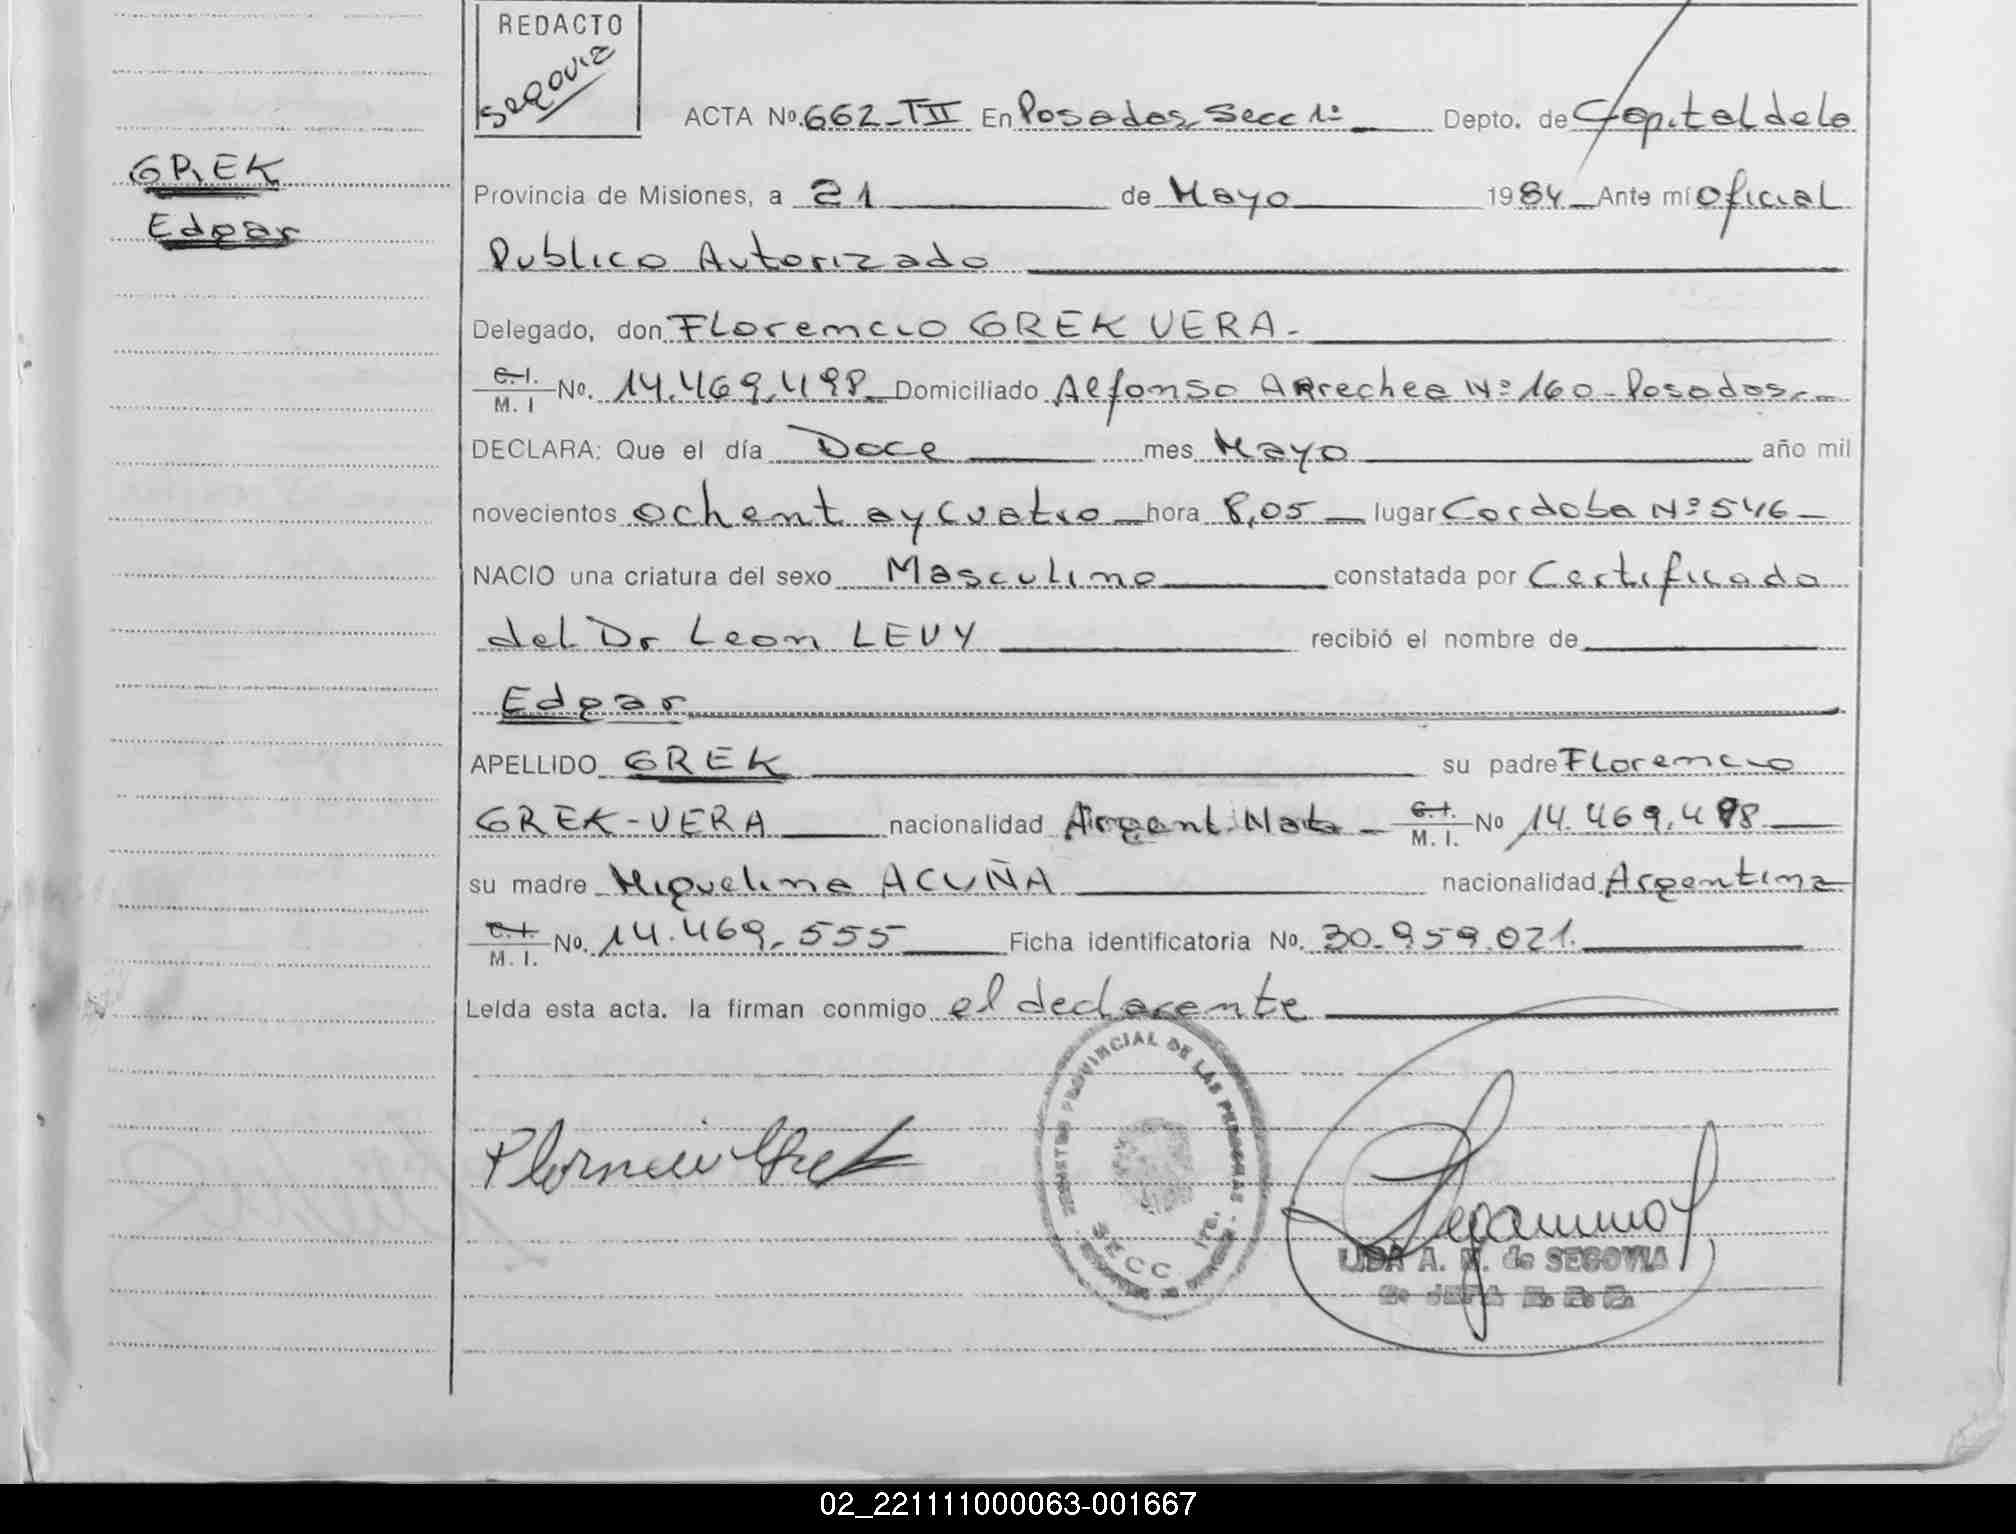 REDACTO
Segovia
ACTA Nº.662-TII En Posadas Secc 1º Depto. de Capital de la
GREK
Edgar
Provincia de Misiones, a 21 de Mayo 1984 Ante mí Oficial
Publico Autorizado
Delegado, don Florencio GREK VERA.-
C. I. M. I No. 14.469.498 Domiciliado Alfonso Arrechea Nº 160-Posadas.-
DECLARA: Que el día Doce mes Mayo año mil
novecientos ochent ay cuatro hora 8,05 lugar Cordoba Nº 546-
NACIO una criatura del sexo Masculino constatada por Certificado
del Dr Leon LEVY recibió el nombre de
Edgar
APELLIDO GREK su padre Florencio
GREK-VERA nacionalidad Argent. Nat. C. I. M. I. No 14.469.498
su madre Miguelina ACUÑA nacionalidad Argentina
C. I. M. I. No. 14.469.555 Ficha identificatoria No. 30.959.021.
Leída esta acta. la firman conmigo el declarante
PROVINCIAL DE LAS PERSONAS
SECC. 1RA.
Florencio Grek
LIDA A. N. de SEGOVIA
02_221111000063-001667